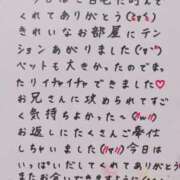 くれてありがとう(≧▽≦)
きれいなお部屋にテン
ションあがりました(^o^)
ベットも大きかった、ぬっ
たりイチャイチャできました♡
お兄さんに攻められてすご
く気持ちよかった〜♡
お返しにたくさんご奉仕
しちゃいました(≧▽≦)今日は
いっぱいだしてくれてありがとう